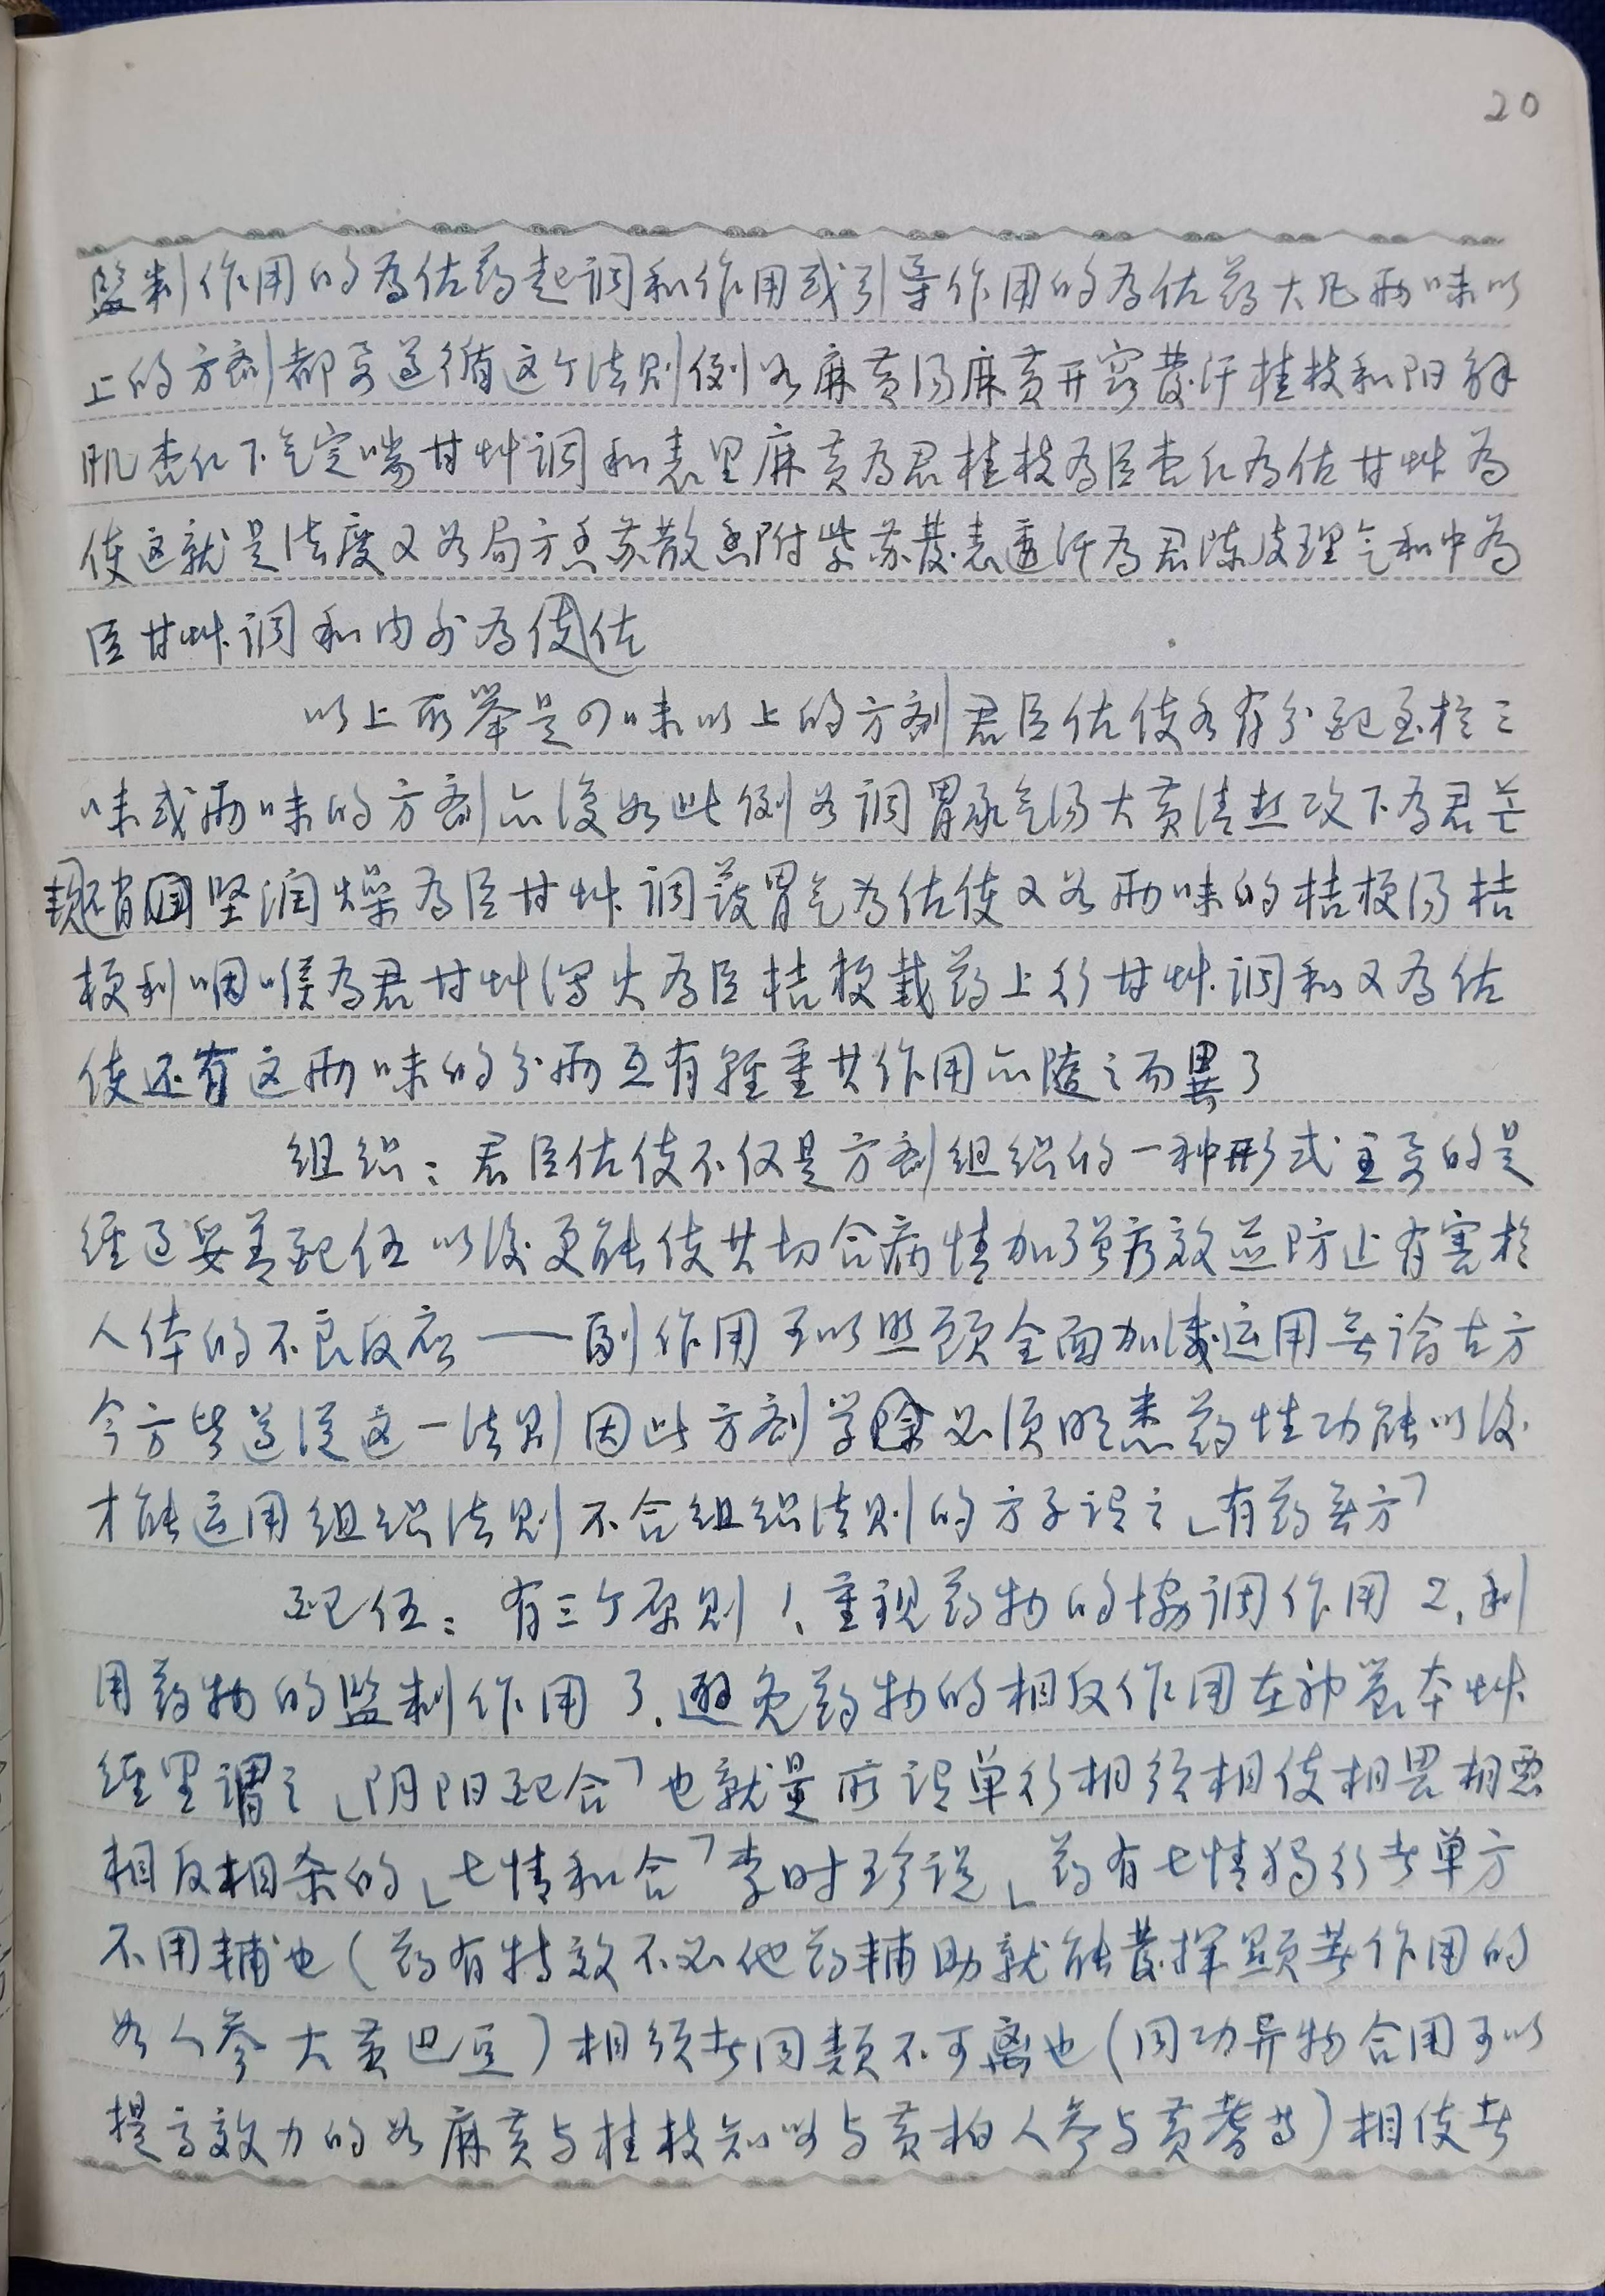 20
監制作用的为佐药起调和作用或引导作用的为佐药大凡两味以
上的方剂都要遵循这个法则例如麻黄汤麻黄开窍發汗桂枝和阳解
肌杏仁下气定喘甘艸调和表里麻黄为君桂枝为臣杏仁为佐甘艸为
使这就是法度又如局方香苏散香附紫苏發表透汗为君陈皮理气和中为
臣甘艸调和内外为使佐
以上所举是四味以上的方剂君臣佐使各有分配至於三
味或两味的方剂亦復如此例如调胃承气汤大黄清热攻下为君芒
硝堅润燥为臣甘艸调護胃气为佐使又如两味的桔梗汤桔
梗利咽喉为君甘艸泻火为臣桔梗载药上行甘艸调和又为佐
使还有这两味的分两互有轻重其作用亦隨之而異了
组织：君臣佐使不仅是方剂组织的一种形式主要的是
经过妥善配伍以後更能使其切合病情加强疗效並防止有害於
人体的不良反应——副作用可以照顾全面加减运用無论古方
今方皆遵从这一法则因此方剂学必须明悉药性功能以後
才能运用组织法则不合组织法则的方子谓之「有药無方」
配伍：有三个原则1.重视药物的协调作用2.利
用药物的监制作用3.避免药物的相反作用在神農本艸
经里谓之「阴阳配合」也就是所谓单行相须相使相畏相恶
相反相杀的「七情和合」李时珍说「药有七情独行者单方
不用輔也（药有特效不必他药辅助就能發挥顕著作用的
如人參大黄巴豆）相须者同類不可离也（同功异物合用可以
提高效力的如麻黄与桂枝知母与黄柏人参与黄蓍等）相使者